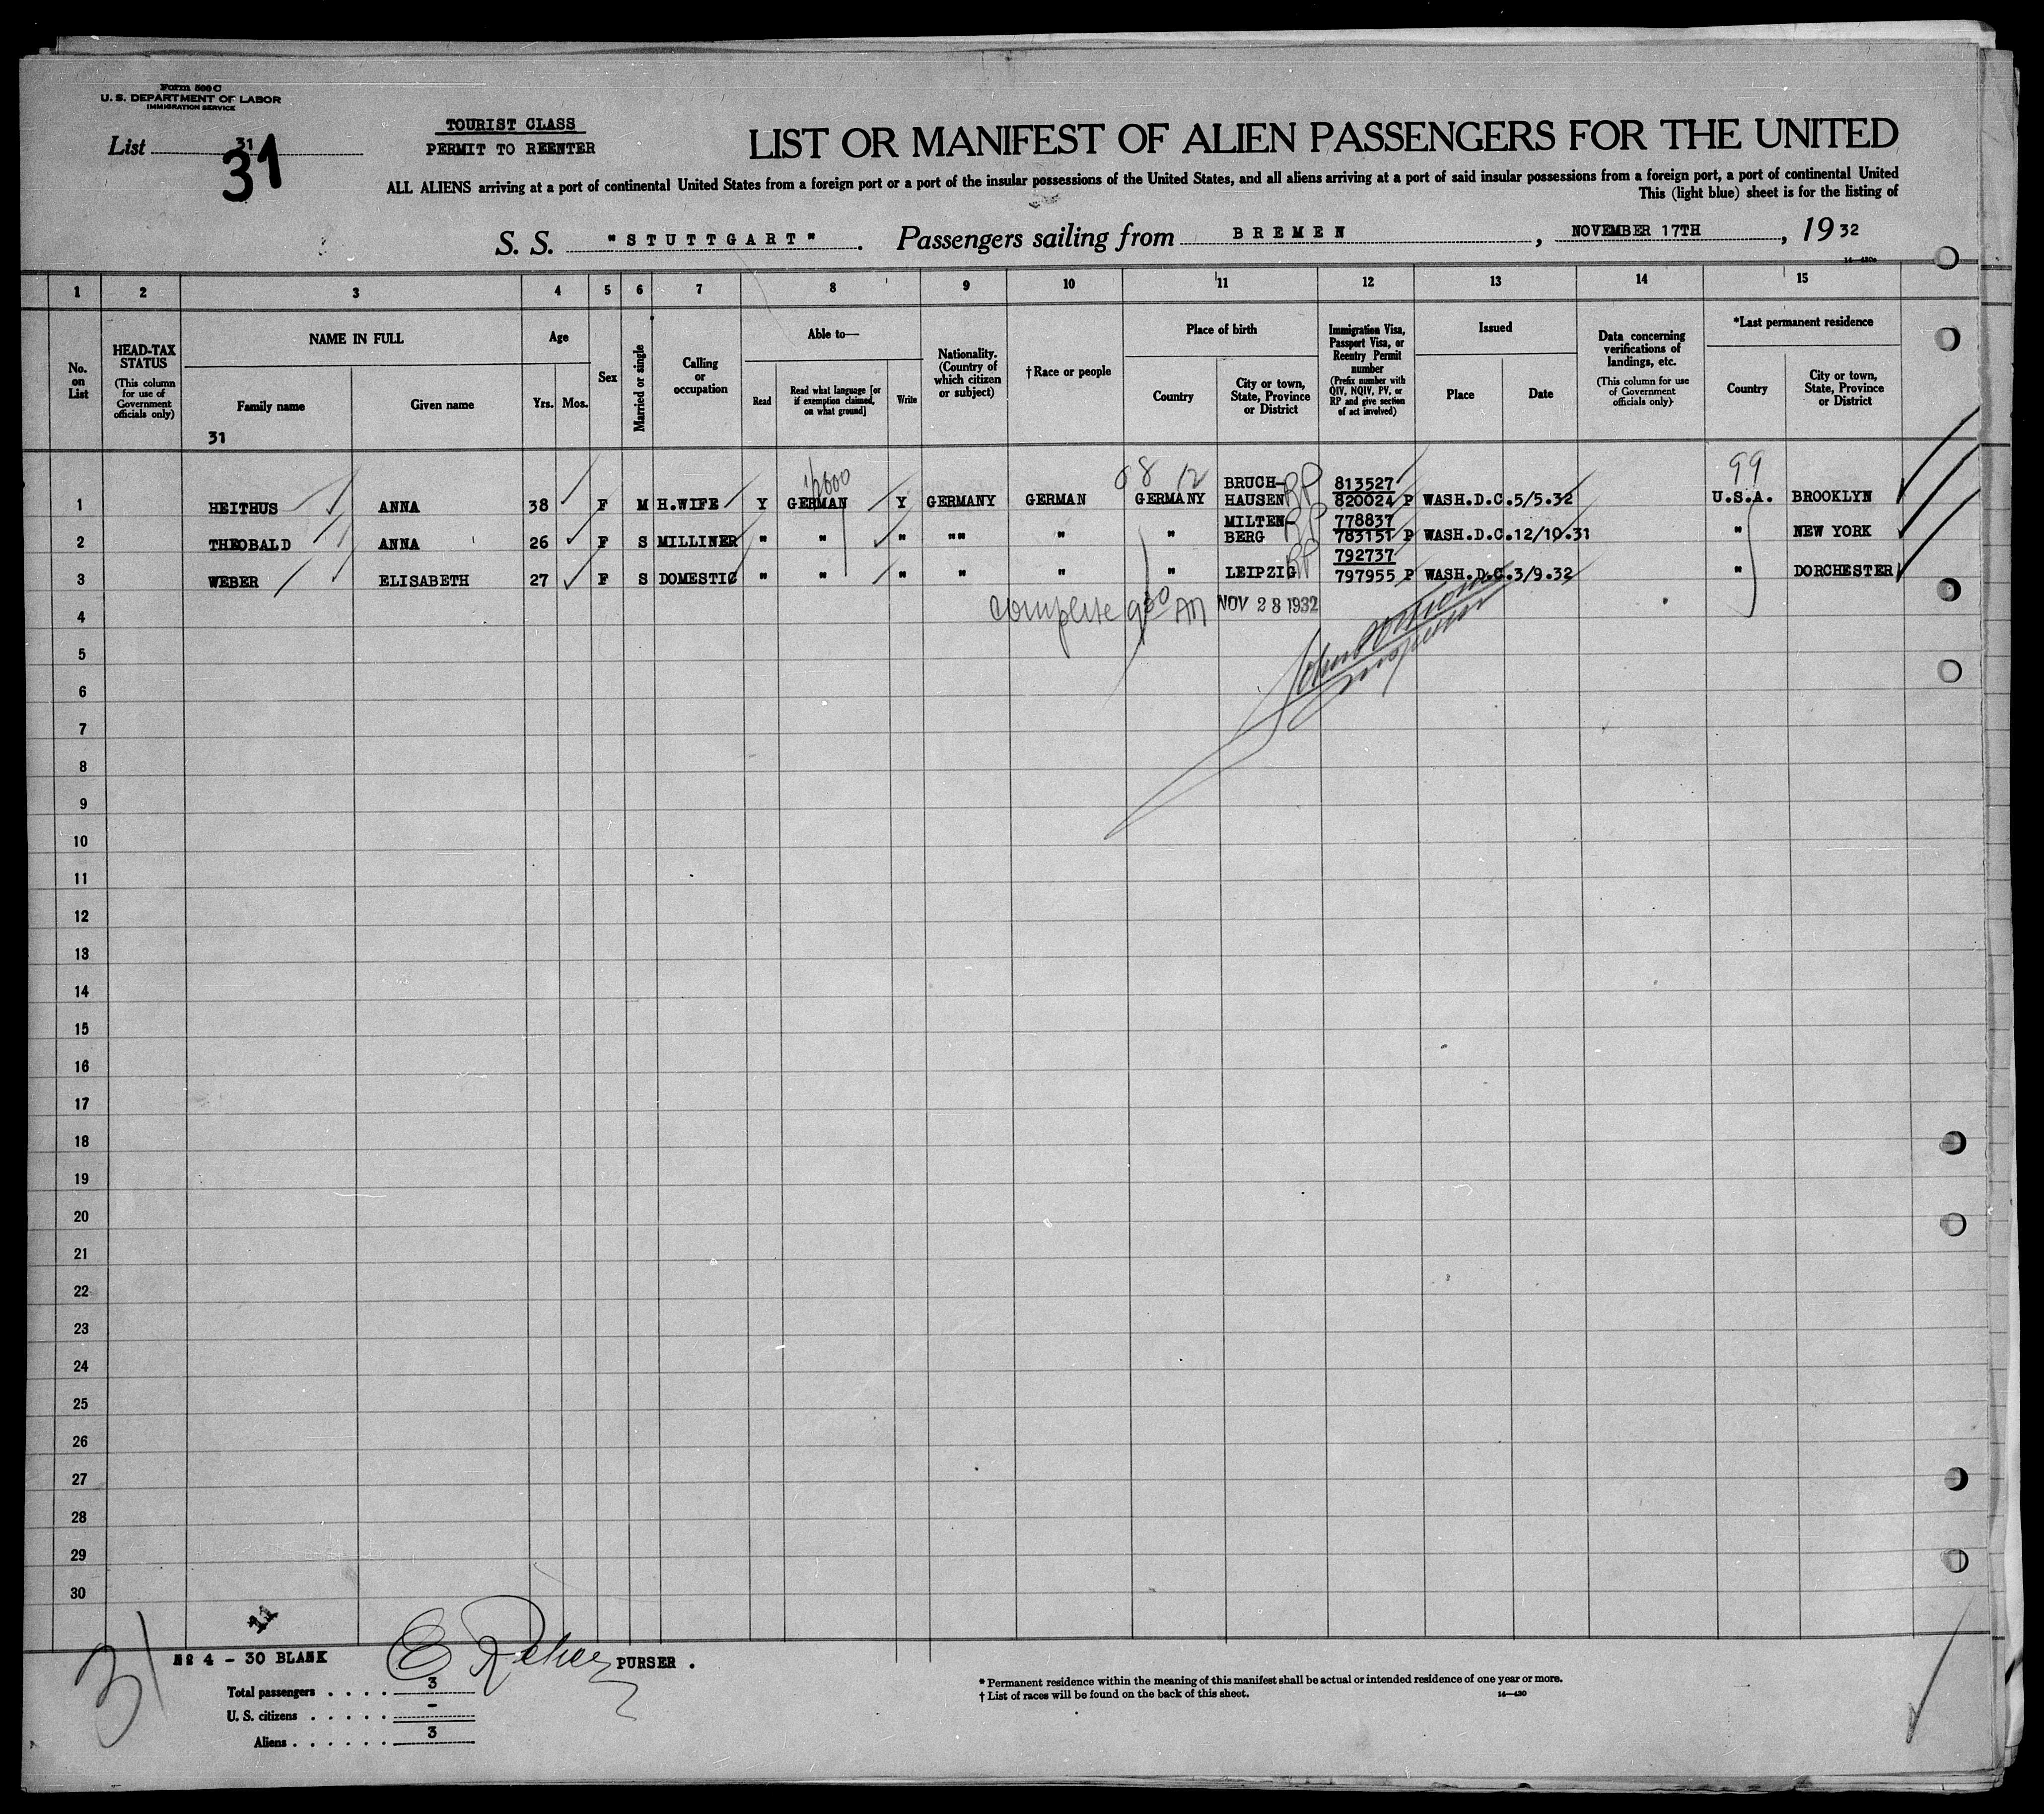 Form 500 C
U. S. DEPARTMENT OF LABOR
IMMIGRATION SERVICE
List 31
31
TOURIST CLASS
PERMIT TO REENTER
LIST OR MANIFEST OF ALIEN PASSENGERS FOR THE UNITED
ALL ALIENS arriving at a port of continental United States from a foreign port or a port of the insular possessions of the United States, and all aliens arriving at a port of said insular possessions from a foreign port, a port of continental United
This (light blue) sheet is for the listing of
S. S. "STUTTGART". Passengers sailing from BREMEN, NOVEMBER 17TH, 1932
1 2 3 4 5 6 7 8 9 10 11 12 13 14 15
No. on List
HEAD-TAX STATUS (This column for use of Government officials only)
NAME IN FULL
Family name
Given name
31
Age
Yrs. Mos.
Sex
Married or single
Calling or occupation
Able to—
Read
Read what language [or if exemption claimed, on what ground]
Write
Nationality. (Country of which citizen or subject)
† Race or people
Place of birth
Country
City or town, State, Province or District
Immigration Visa, Passport Visa, or Reentry Permit number (Prefix number with QIV, NQIV, PV, or RP and give section of act involved)
Issued
Place
Date
Data concerning verifications of landings, etc. (This column for use of Government officials only)
*Last permanent residence
Country
City or town, State, Province or District
99
BRUCH- 813527
1 HEITHUS ANNA 38 F M H.WIFE Y GERMAN Y GERMANY GERMAN GERMANY HAUSEN RP 820024 P WASH.D.C. 5/5.32 U.S.A. BROOKLYN
MILTEN- 778837
2 THEOBALD ANNA 26 F S MILLINER " " " "" " " BERG RP 783151 P WASH.D.C. 12/10.31 " NEW YORK
792737
3 WEBER ELISABETH 27 F S DOMESTIC " " " " " " LEIPZIG RP 797955 P WASH.D.C. 3/9.32 " DORCHESTER
complete 9 30 AM NOV 28 1932
4
5
6
7
8
9
10
11
12
13
14
15
16
17
18
19
20
21
22
23
24
25
26
27
28
29
30
31
No 4 - 30 BLANK
PURSER .
Total passengers . . . . 3
U. S. citizens . . . . . -
Aliens . . . . . . 3
* Permanent residence within the meaning of this manifest shall be actual or intended residence of one year or more.
† List of races will be found on the back of this sheet.
14—430